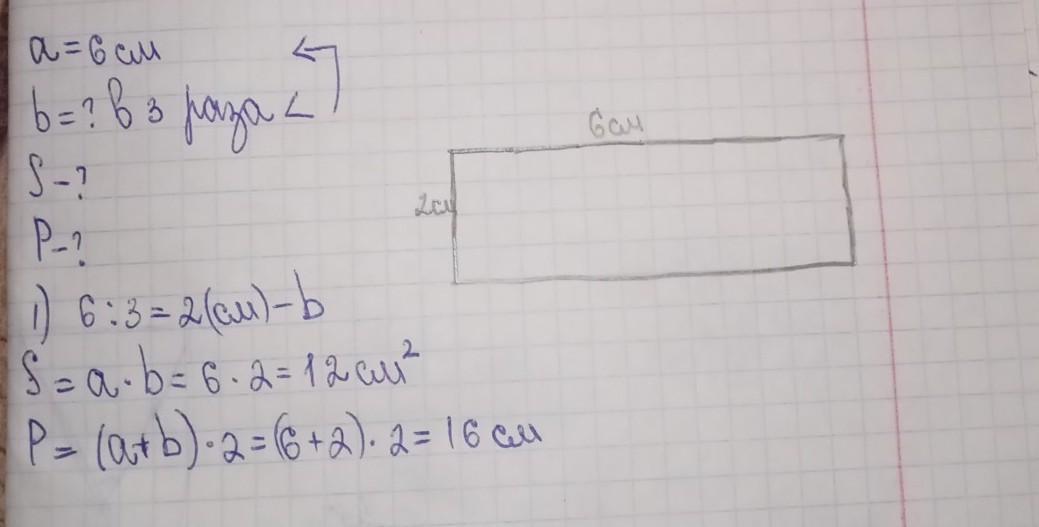 a = 6 см
b = ? в 3 раза <
S - ?
P - ?
6 см
2 см
1) 6 : 3 = 2 (см) - b
S = a · b = 6 · 2 = 12 см²
P = (a + b) · 2 = (6 + 2) · 2 = 16 см